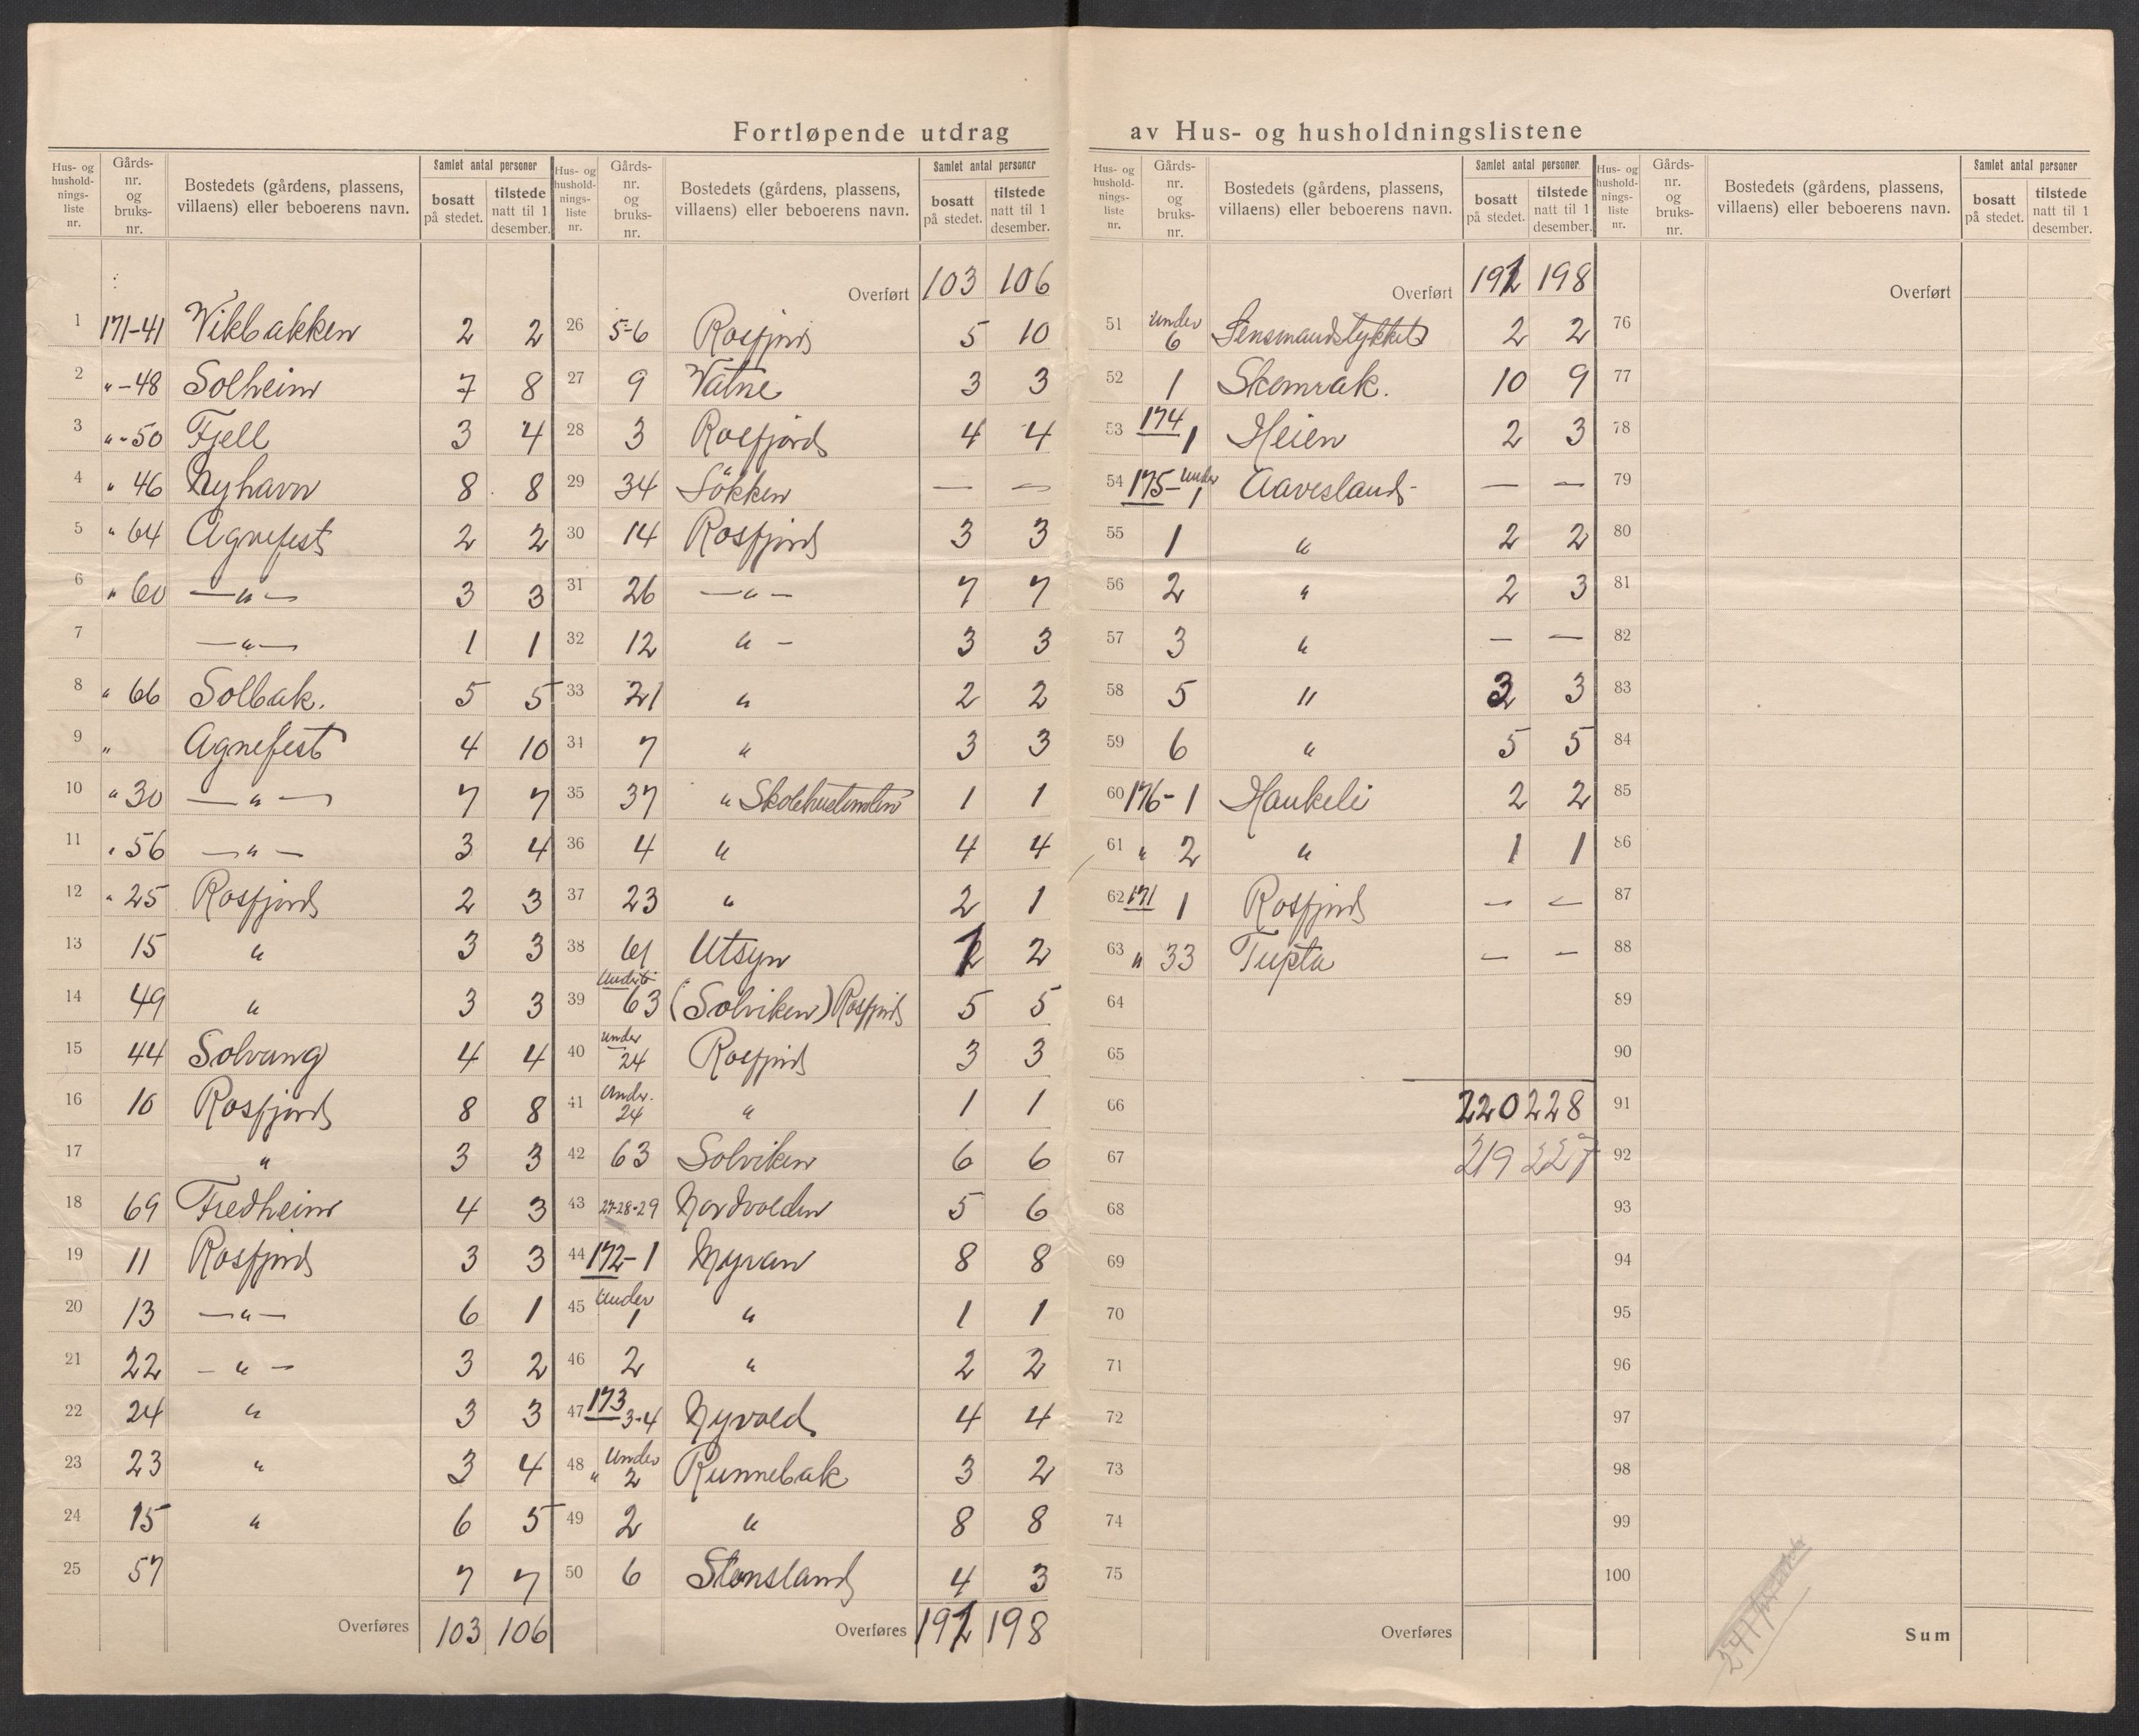 Fortløpende utdrag av Hus- og husholdningslistene
Hus- og husholdnings-liste nr. | Gårds-nr. og bruks-nr. | Bostedets (gårdens, plassens, villaens) eller beboerens navn. | Samlet antal personer | bosatt på stedet. | tilstede natt til 1 desember.
1 171-41 Vikbakken 2 2
2 " -48 Solheim 7 8
3 " -50 Fjell 3 4
4 " 46 Nyhavn 8 8
5 " 64 Agnefest 2 2
6 " 60 —"— 3 3
7 —"— 1 1
8 " 66 Solbak. 5 5
9 " Agnefest 4 10
10 " 30 —"— 7 7
11 " 56 —"— 3 4
12 " 25 Rosfjord 2 3
13 15 " 3 3
14 49 " 3 3
15 44 Solvang 4 4
16 10 Rosfjord 8 8
17 " 3 3
18 69 Fredheim 4 3
19 11 Rosfjord 3 3
20 13 —"— 6 1
21 22 —"— 3 2
22 24 " 3 3
23 23 " 3 4
24 15 " 6 5
25 57 7 7
Overføres 103 106
Hus- og husholdnings-liste nr. | Gårds-nr. og bruks-nr. | Bostedets (gårdens, plassens, villaens) eller beboerens navn. | Samlet antal personer | bosatt på stedet. | tilstede natt til 1 desember.
Overført 103 106
26 5-6 Rosfjord 5 10
27 9 Vatne 3 3
28 3 Rosfjord 4 4
29 34 Søkken — —
30 14 Rosfjord 3 3
31 26 —"— 7 7
32 12 " — 3 3
33 21 " 2 2
34 7 " 3 3
35 37 " 1 1
36 4 " 4 4
37 23 " 2 1
38 61 Utsyn 2
39 63 (Solviken) Rosfjord 5 5
40 under 24 Rosfjord 3 3
41 Under. 24 " 1 1
42 63 Solviken 6 6
43 27-28-29 Nordvolden 5 6
44 172-1 Myran 8 8
45 Under 1 " 1 1
46 2 " 2 2
47 173 3-4 Nyvold 4 4
48 " Under 2 Runnebak 3 2
49 2 " 8 8
50 6 Stensland 4 3
Overføres 191 198
Hus- og husholdnings-liste nr. | Gårds-nr. og bruks-nr. | Bostedets (gårdens, plassens, villaens) eller beboerens navn. | Samlet antal personer. | bosatt på stedet. | tilstede natt til 1 desember.
Overført 191 198
51 under 6 Lensmandstykket 2 2
52 1 Skomrak. 10 9
53 174 1 Heien 2 3
54 175- under 1 Aavesland — —
55 1 " 2 2
56 2 " 2 3
57 3 " — —
58 5 " 3 3
59 6 " 5 5
60 176-1 Haukeli 2 2
61 " 2 " 1 1
62 171 1 Rosfjord — —
63 " 33 Tupta — —
64
65
66 220 228
67 219 227
68
69
70
71
72
73
74
75
Overføres
Hus- og husholdnings-liste nr. | Gårds-nr. og bruks-nr. | Bostedets (gårdens, plassens, villaens) eller beboerens navn. | Samlet antal personer | bosatt på stedet. | tilstede natt til 1 desember.
Overført
76
77
78
79
80
81
82
83
84
85
86
87
88
89
90
91
92
93
94
95
96
97
98
99
100
Sum